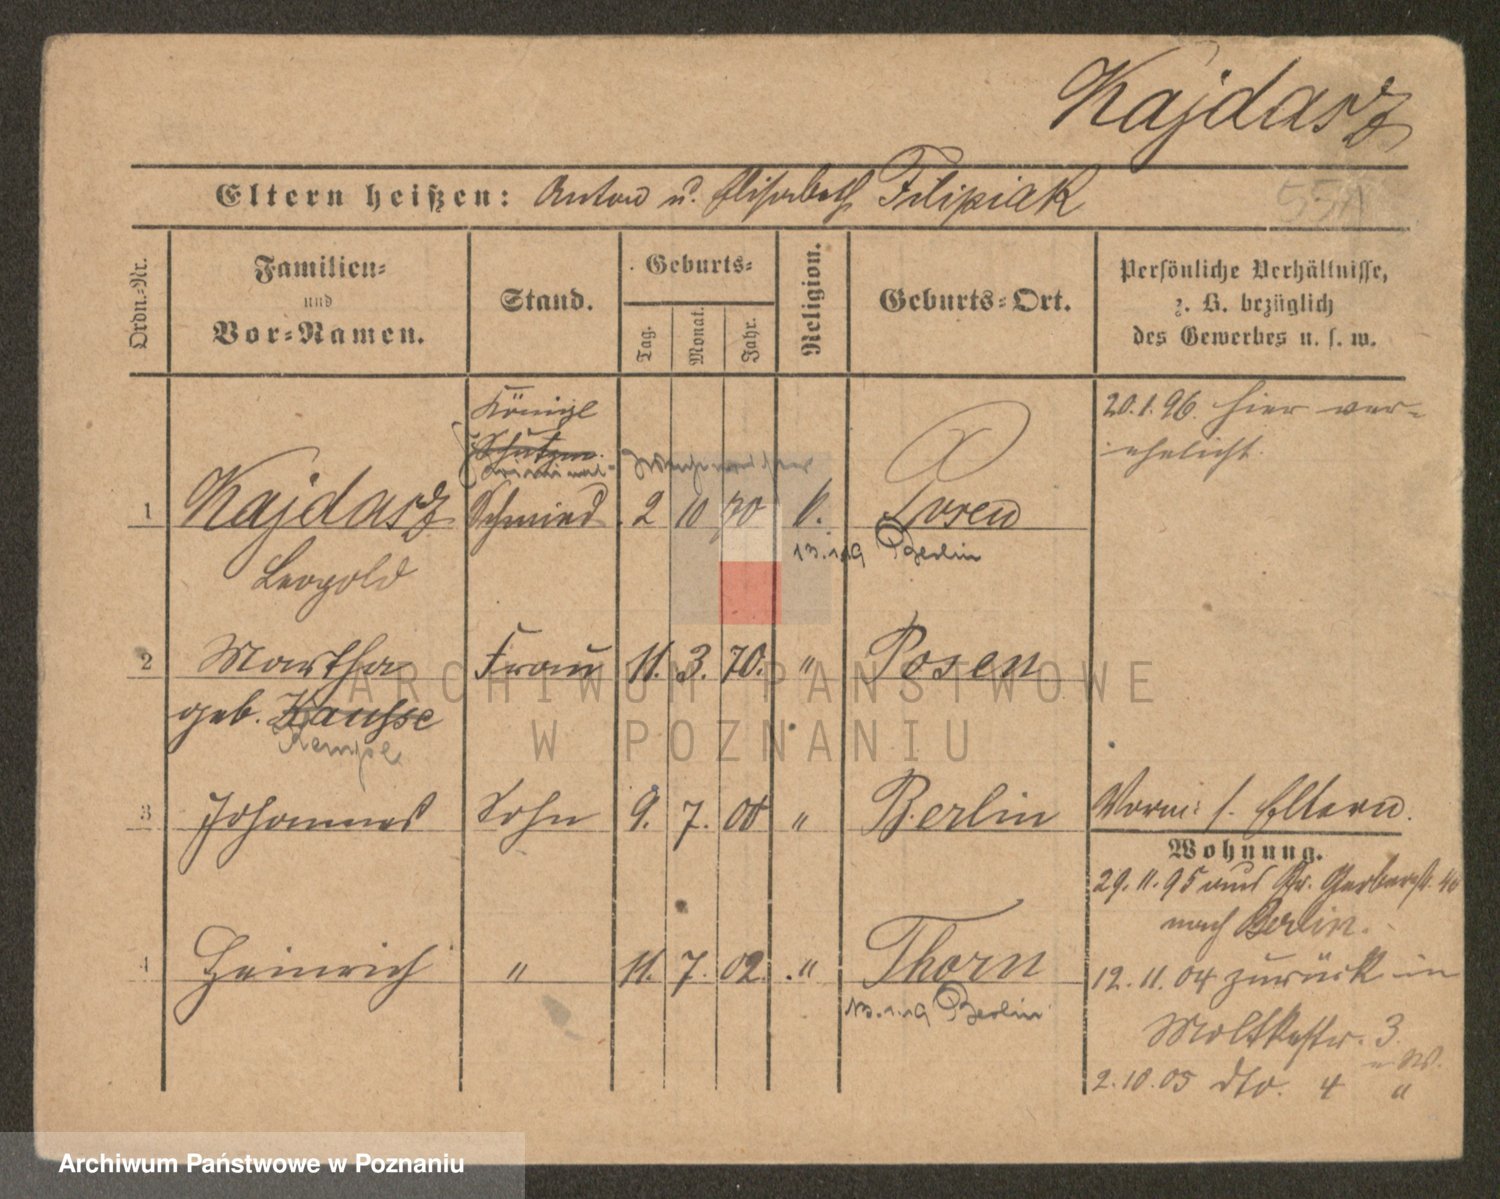 Kajdasz
Eltern heißen: Anton u. Elisabeth Filipiak
55A
Ordn.-Nr.
Familien- und Vor-Namen.
Stand.
Geburts-
Tag. Monat. Jahr.
Religion.
Geburts-Ort.
Persönliche Verhältnisse,
z. B. bezüglich
des Gewerbes u. s. w.
20.1.96. hier ver-
ehelicht.
Königl
Schutzm.
Kriminal-
1 Kajdasz Schmied 2 10 70 k. Posen
13.1.19 Berlin
Leopold
2 Martha Frau 11. 3. 70. " Posen
geb. Kauhse
Kempe
3 Johannes Sohn 9. 7. 00 " Berlin
Vorm: s. Eltern.
Wohnung.
29.11.95 aus Gr. Gerberstr. 40
nach Berlin.
4 Heinrich " 11. 7. 02. " Thorn
13.1.19 Berlin
12.11.04 zurück in
Moltkestr. 3.
2.10.05 dto. 4 "
ARCHIWUM PAŃSTWOWE
W POZNANIU
Archiwum Państwowe w Poznaniu